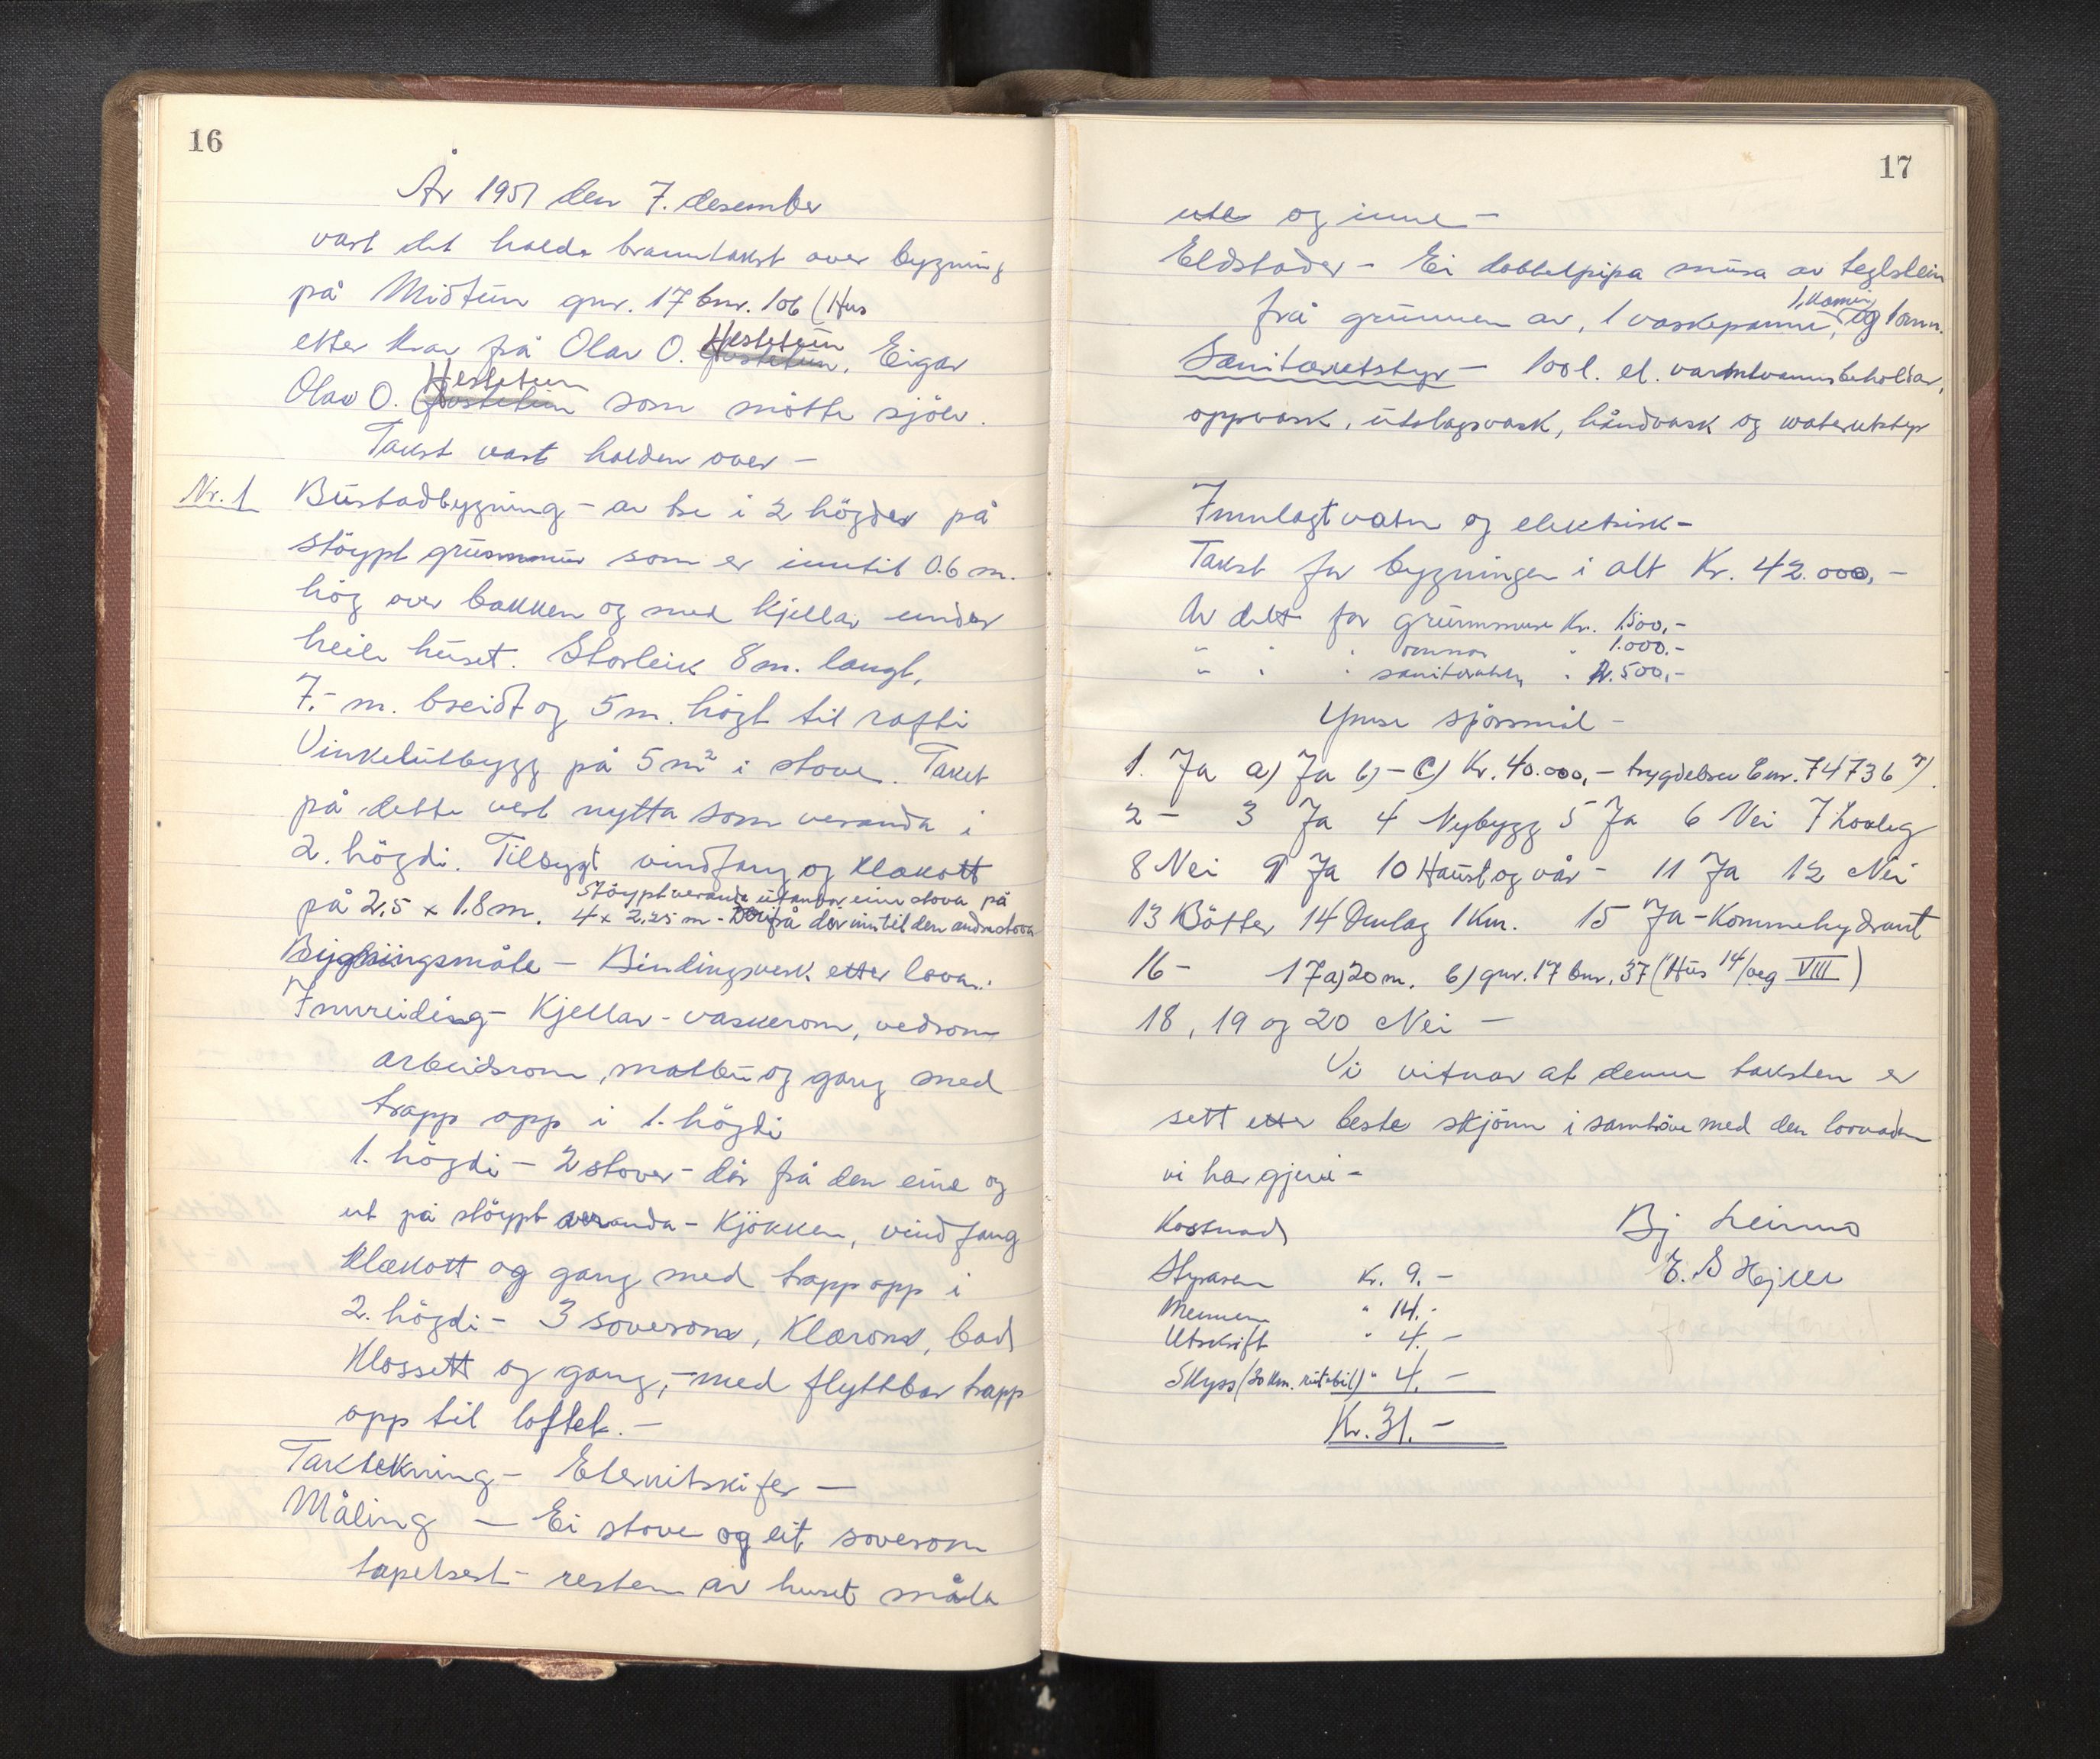 16
År 1951 den 7. desember
vart det halde branntakst over bygning
på Midtun gnr. 17 bnr. 106 (Hus
etter krav frå Olav O. Hestetun. Eigar
Olav O. Hestetun som møtte sjölv.
Takst vart halden over -
Nr. 1 Bustadbygning - av tre i 2 högder på
stöypt grunnmur som er inntil 0.6 m.
hög over bakken og med kjellar under
heile huset. Storleik 8 m. langt,
7.- m. breidt og 5 m. högt til rafti
Vinkelutbygg på 5 m² i stove. Taket
på dette vert nytta som veranda i
2. högdi. Tilbygt vindfang og klækott
på 2,5 x 1.8 m. Stöypt veranda utanfor eine stova på
4 x 2,25 m - Derifrå dör inn til den andre stova
Bygningsmåte - Bindingsverk etter lova.
Innreiding - Kjellar - vaskerom, vedrom
arbeidsrom, matbu og gang med
trapp opp i 1. högdi
1. högdi - 2 stover - dör frå den eine og
ut på stöypt veranda - Kjökken, vindfang
klækott og gang med trapp opp i
2. högdi - 3 soverom, klærom, bad
klossett og gang, - med flyttbar trapp
opp til loftet. -
Taktekning - Eternitskifer -
Måling - Ei stove og eit soverom
tapetsert - resten av huset måla
17
ute og inne -
Eldstader - Ei dobbelpipa mura av teglstein
frå grunnen av, 1 vaskepanne, 1 kamin og 1 omn.
Sanitærutstyr - 100 l. el. varmtvannsbeholdar,
oppvask, utslagsvask, håndvask og waterutstyr
Innlagt vatn og elektrisk -
Takst for bygningen i alt Kr. 42.000,-
Av dett for grunnmure Kr. 1.500,-
" " " omnar " 1.000.-
" " " sanitærutstyr " 2.500,-
Ymse spörsmål -
1. Ja a) Ja b) - c) Kr. 40.000,- trygdebrev bnr. 74736 7).
2 - 3 Ja 4 Nybygg 5 Ja 6 Nei 7 Lovleg
8 Nei 9 Ja 10 Haust og vår - 11 Ja 12 Nei
13 Bötter 14 Omlag 1 Km. 15 Ja - Kommehydrant
16 - 17 a) 20 m. b) gnr. 17 bnr. 37 (Hus 14/veg VIII)
18, 19 og 20 Nei -
Vi vitnar at denne taksten er
sett etter beste skjönn i samhöve med den lovnaden
vi har gjeve -
Kostnad Bj Leirmo
Styraren Kr. 9.- E. B Hejlle
Mennene " 14.-
Utskrift " 4.-
Skyss (20 km. rutebil) " 4.-
Kr. 31.-